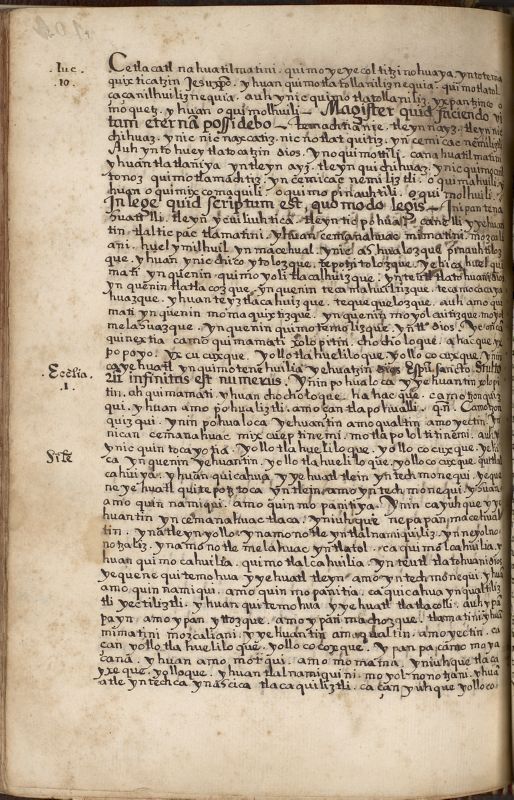 .luc.
.10.
Cetlacatl nahuatilmatini. quimoyeyecoltitzinohuaya, yntotema
quixticatzin Jesuxpo. yhuan quimotlatollaniliznequia. quimotlatol
cacanilhuiliznequia. auh ynic quimotlatollaniliz. yxpantzinco o
moquetz. yhuan oquimolhuili. Magister quid faciendo vi
tam eternã possidebo. temachtianie. tleyn nayz. tleyn nic
chihuaz. ynic nicnaxcatiz. nicnotlatquitiz. yn cemicac nemiliztli
Auh ynto hueytlatocatzin Dios. ynoquimottili. cana huatilmatini
yhuan tlatlaniya yntleyn ayz. tleyn quichihuaz. ynic quimocni
tonoz quimotlamachtiz yn cemicac nemiliztli. oquimahuili. y
huan oquimixcomaquili. oquimopinauhtili. oquimolhuili.
In lege quid scriptum est, quomodo legis. Inipantena
huatilli. tleyn ycuiliuhtica. tleyn tic pohua. canelli yyehuan
tin. tlalticpac tlamatini. yhuan cemanahuac mimatini. mozcali
ani. huel ymilhuil yn macehual. ynic
que. yhuan ynic
mati yn quenin. quimoyolitlacalhuizque. yn teutl tlatohuani Dios
yn quenin tlatlacozque. yn quenin tecamahuiltizque. temocacaya
huazque. yhuan teyztlacahuizque. tequequelozque. auh amo qui
mati yn quenin momaquixtizque. yn quenin moyolcuitizque. moyol
melahuazque. yn quenin quimotemolizque. yn tt.º Dios. ye
quinextia camo quimamati xolopitin. chochologue. ahacque. yx
popoyo. yxcucuxque. yollotlahueliloque yollococuxque. ynin
cayehuatl yn quimotenehuilia yehuatzin Dios Espũ sancto. Stulto
.Ecclia.
.1.
rũ infinitus est numerus. Ynin pohualoca yyehuantin xolopi
tin. ah quimamati yhuan chochologue. hahacque. camotzonquiz
qui. yhuan amo pohualiztli. amo cantlapohualli. qñ. Camotzon
quizqui. ynin pohualoca yehuantin amo qualtin amo yectin. yn
nican cemanahuac mixcueptinemi. motlapololtitinemi. auh y
ynic quintocayotia. yollotlahueliloque. yollococuxque. yehi
ca yn quenin yehuantin. yollotlahueliloque. yollococuxque. quitlal
cahuiya. yhuan quicahua yyehuatl tlein yntech monequi. yeque
neyehuatl quitepotztoca yn tlein, amo yntech monequi. yhuan
amo quinnamiqui. amo quinmopanitiya. Ynin cayuhque yye
huantin yn cemanahuac tlaca. yniuhque nepapan macehual
tin. ynatle ynyollo. ynamo notle yntlalnamiquiliz. yn neyolno
notzaliz. ynamonotle melahuac yntlatol. caquimolcahuilia. y
huan quimocahuilia. quimotlalcahuilia. yn teutl tlatohuani Dios
yequene quitemohua yyehuatl tleyn. amo yntech monequi. yhuã
amo quinnamiqui. amo quinmopanitia. caquicahua ynqualtiliz
tli yectiliztli. yhuan quitemohua yyehuatl tlatlacolli. auh ypã
payn. amo ypan yttozque. amo ypan machozque. tlamatini yhuã
mimatini mozcaliani. yyehuantin amo qualtin. amo yectin. ca
can yollotlahueliloque. yollococoxque. ypanpa camo mo ya
çana. yhuan amo motqui. amo momama. yniuhque tlaca
yxeque. yolloque. yhuan tlalnamiquini. moyolnonotzani. yhuã
atle yntechca ynascica tlacaquiliztli. cacan yuhque yolloco